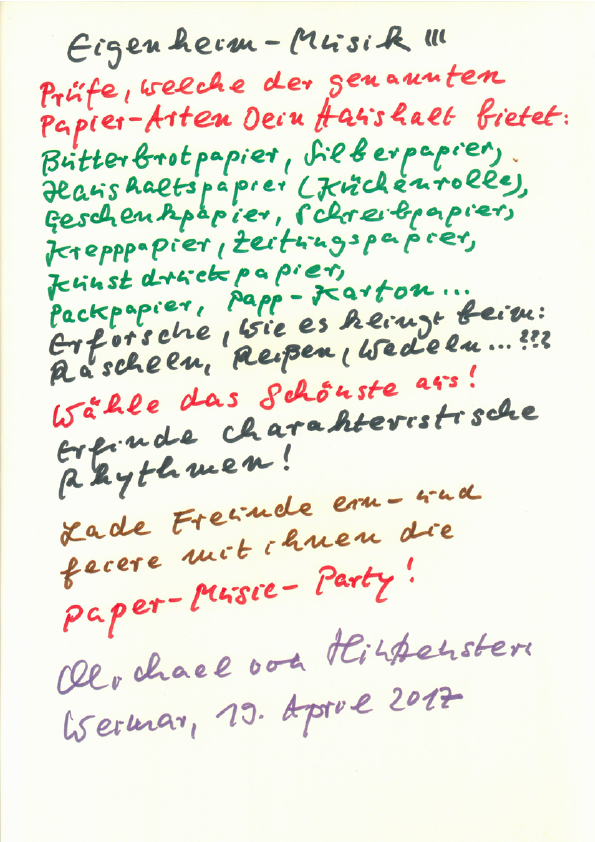 Eigenheim-Musik III
Prüfe, welche der genannten
Papier-Arten Dein Haushalt bietet:
Butterbrotpapier, Silberpapier,
Haushaltspapier (Küchenrolle),
Geschenkpapier, Schreibpapier,
Krepppapier, Zeitungspapier,
Kunstdruckpapier,
Packpapier, Papp-Karton...
Erforsche, wie es klingt beim:
Rascheln, Reißen, Wedeln...???
Wähle das Schönste aus!
Erfinde charakteristische
Rhythmen!
Lade Freunde ein - und
feiere mit ihnen die
Paper-Music-Party!
Michael von Hintzenstern
Weimar, 19. April 2017